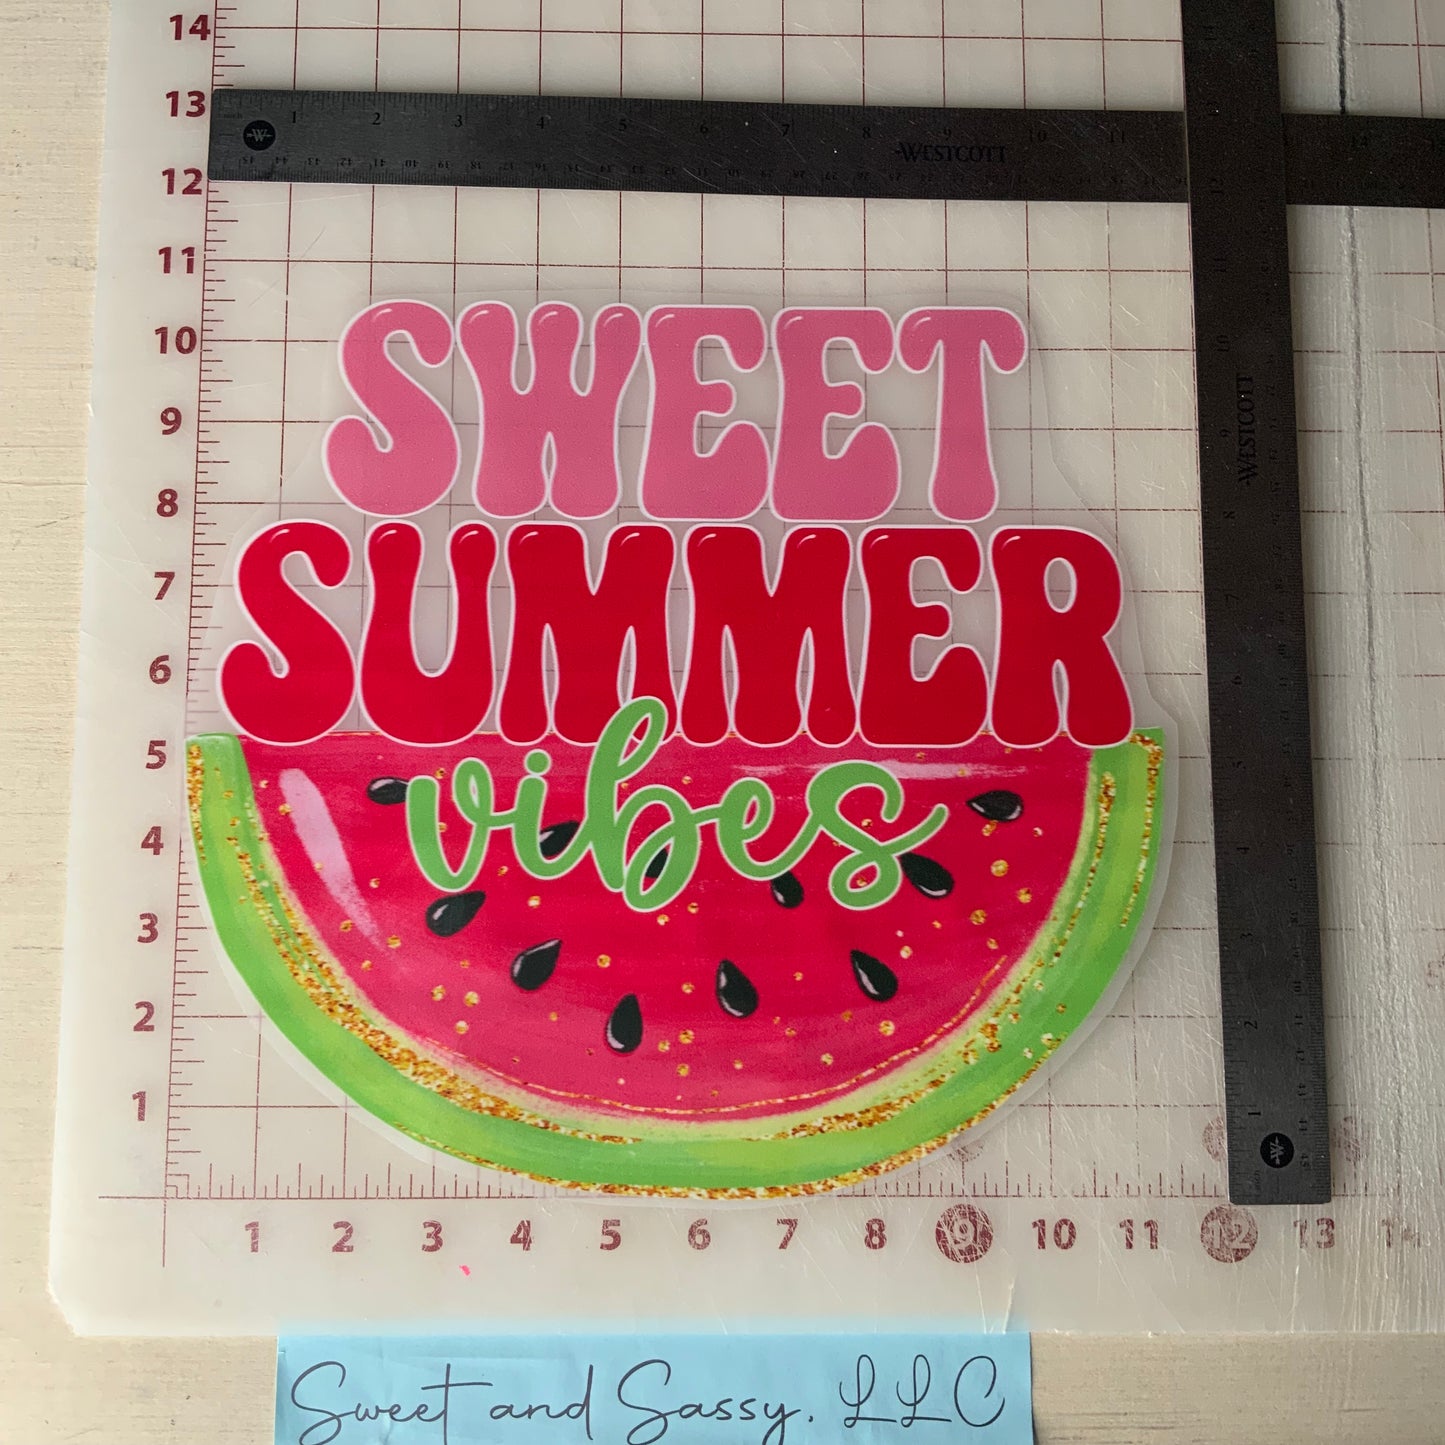 14
13
12
11
10
9
8
7
6
5
4
3
2
1
1 2 3 4 5 6 7 8 9 10 11
WESTCOTT
WESTCOTT
SWEET
SUMMER
vibes
1 2 3 4 5 6 7 8 9 10 11 12 13 14
Sweet and Sassy, LLC